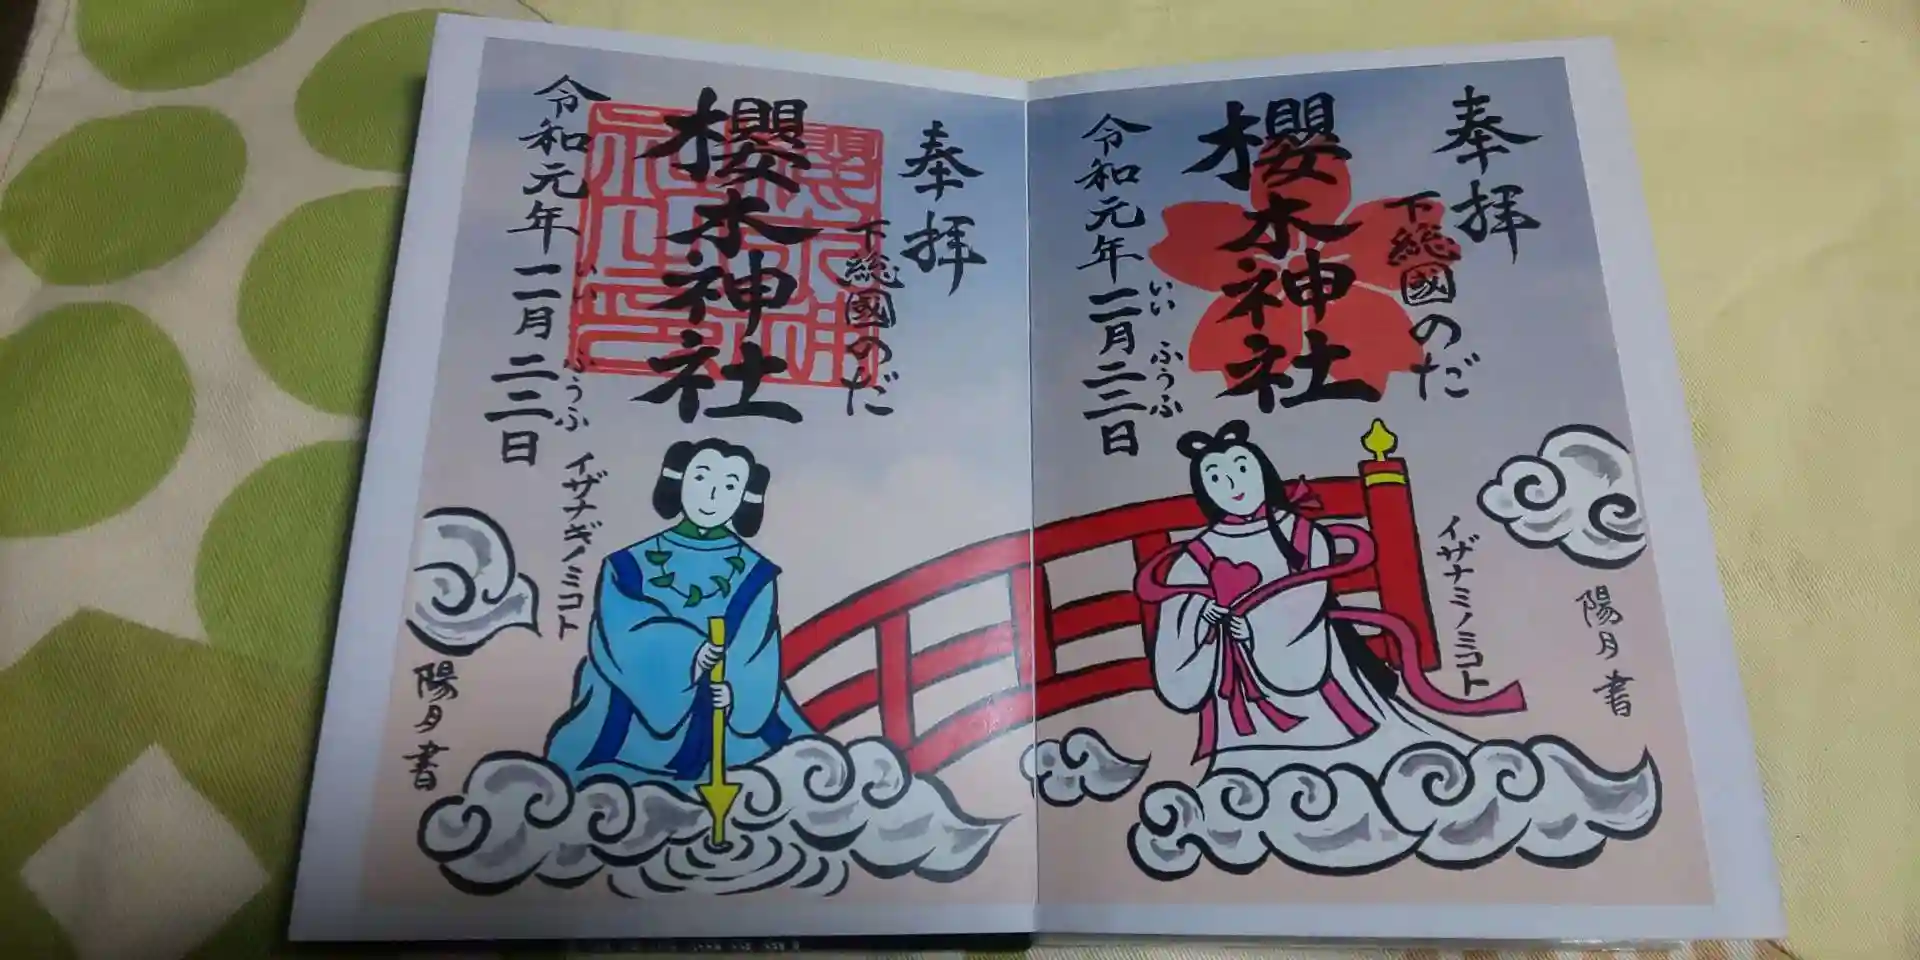 奉拝
下総國のだ
櫻木神社
いい ふうふ
令和元年一一月二二日
イザナミノミコト
陽月書
奉拝
下総國のだ
櫻木神社
いい ふうふ
令和元年一一月二二日
イザナギノミコト
陽月書